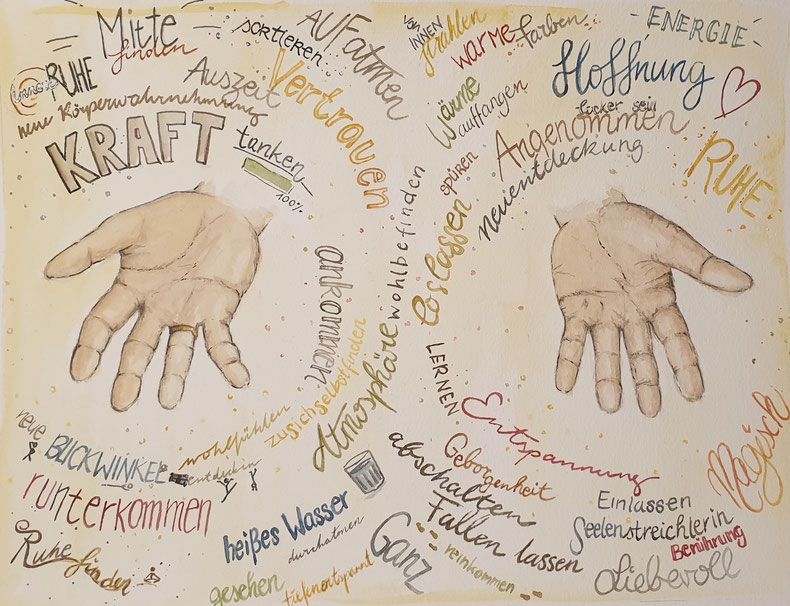 Mitte
finden
RUHE
neue Körperwahrnehmung
KRAFT
tanken
100%
Auszeit
sortieren
AUFatmen
Vertrauen
von
INNEN
strahlen
warme Farben
Wärme
auffangen
ENERGIE
Hoffnung
locker sein
Angenommen
neuentdeckung
RUHE
spüren
loslassen
wohlbefinden
ankommen
zu sich selbst finden
Atmosphäre
LERNEN
neue
BLICKWINKEL
entdecken
wohlfühlen
runterkommen
Ruhe finden
heißes Wasser
durchatmen
gesehen
tiefenentspannt
Ganz
Entspannung
Geborgenheit
abschalten
Fallen lassen
reinkommen
Einlassen
Seelenstreichlerin
Berührung
Liebevoll
Magisch